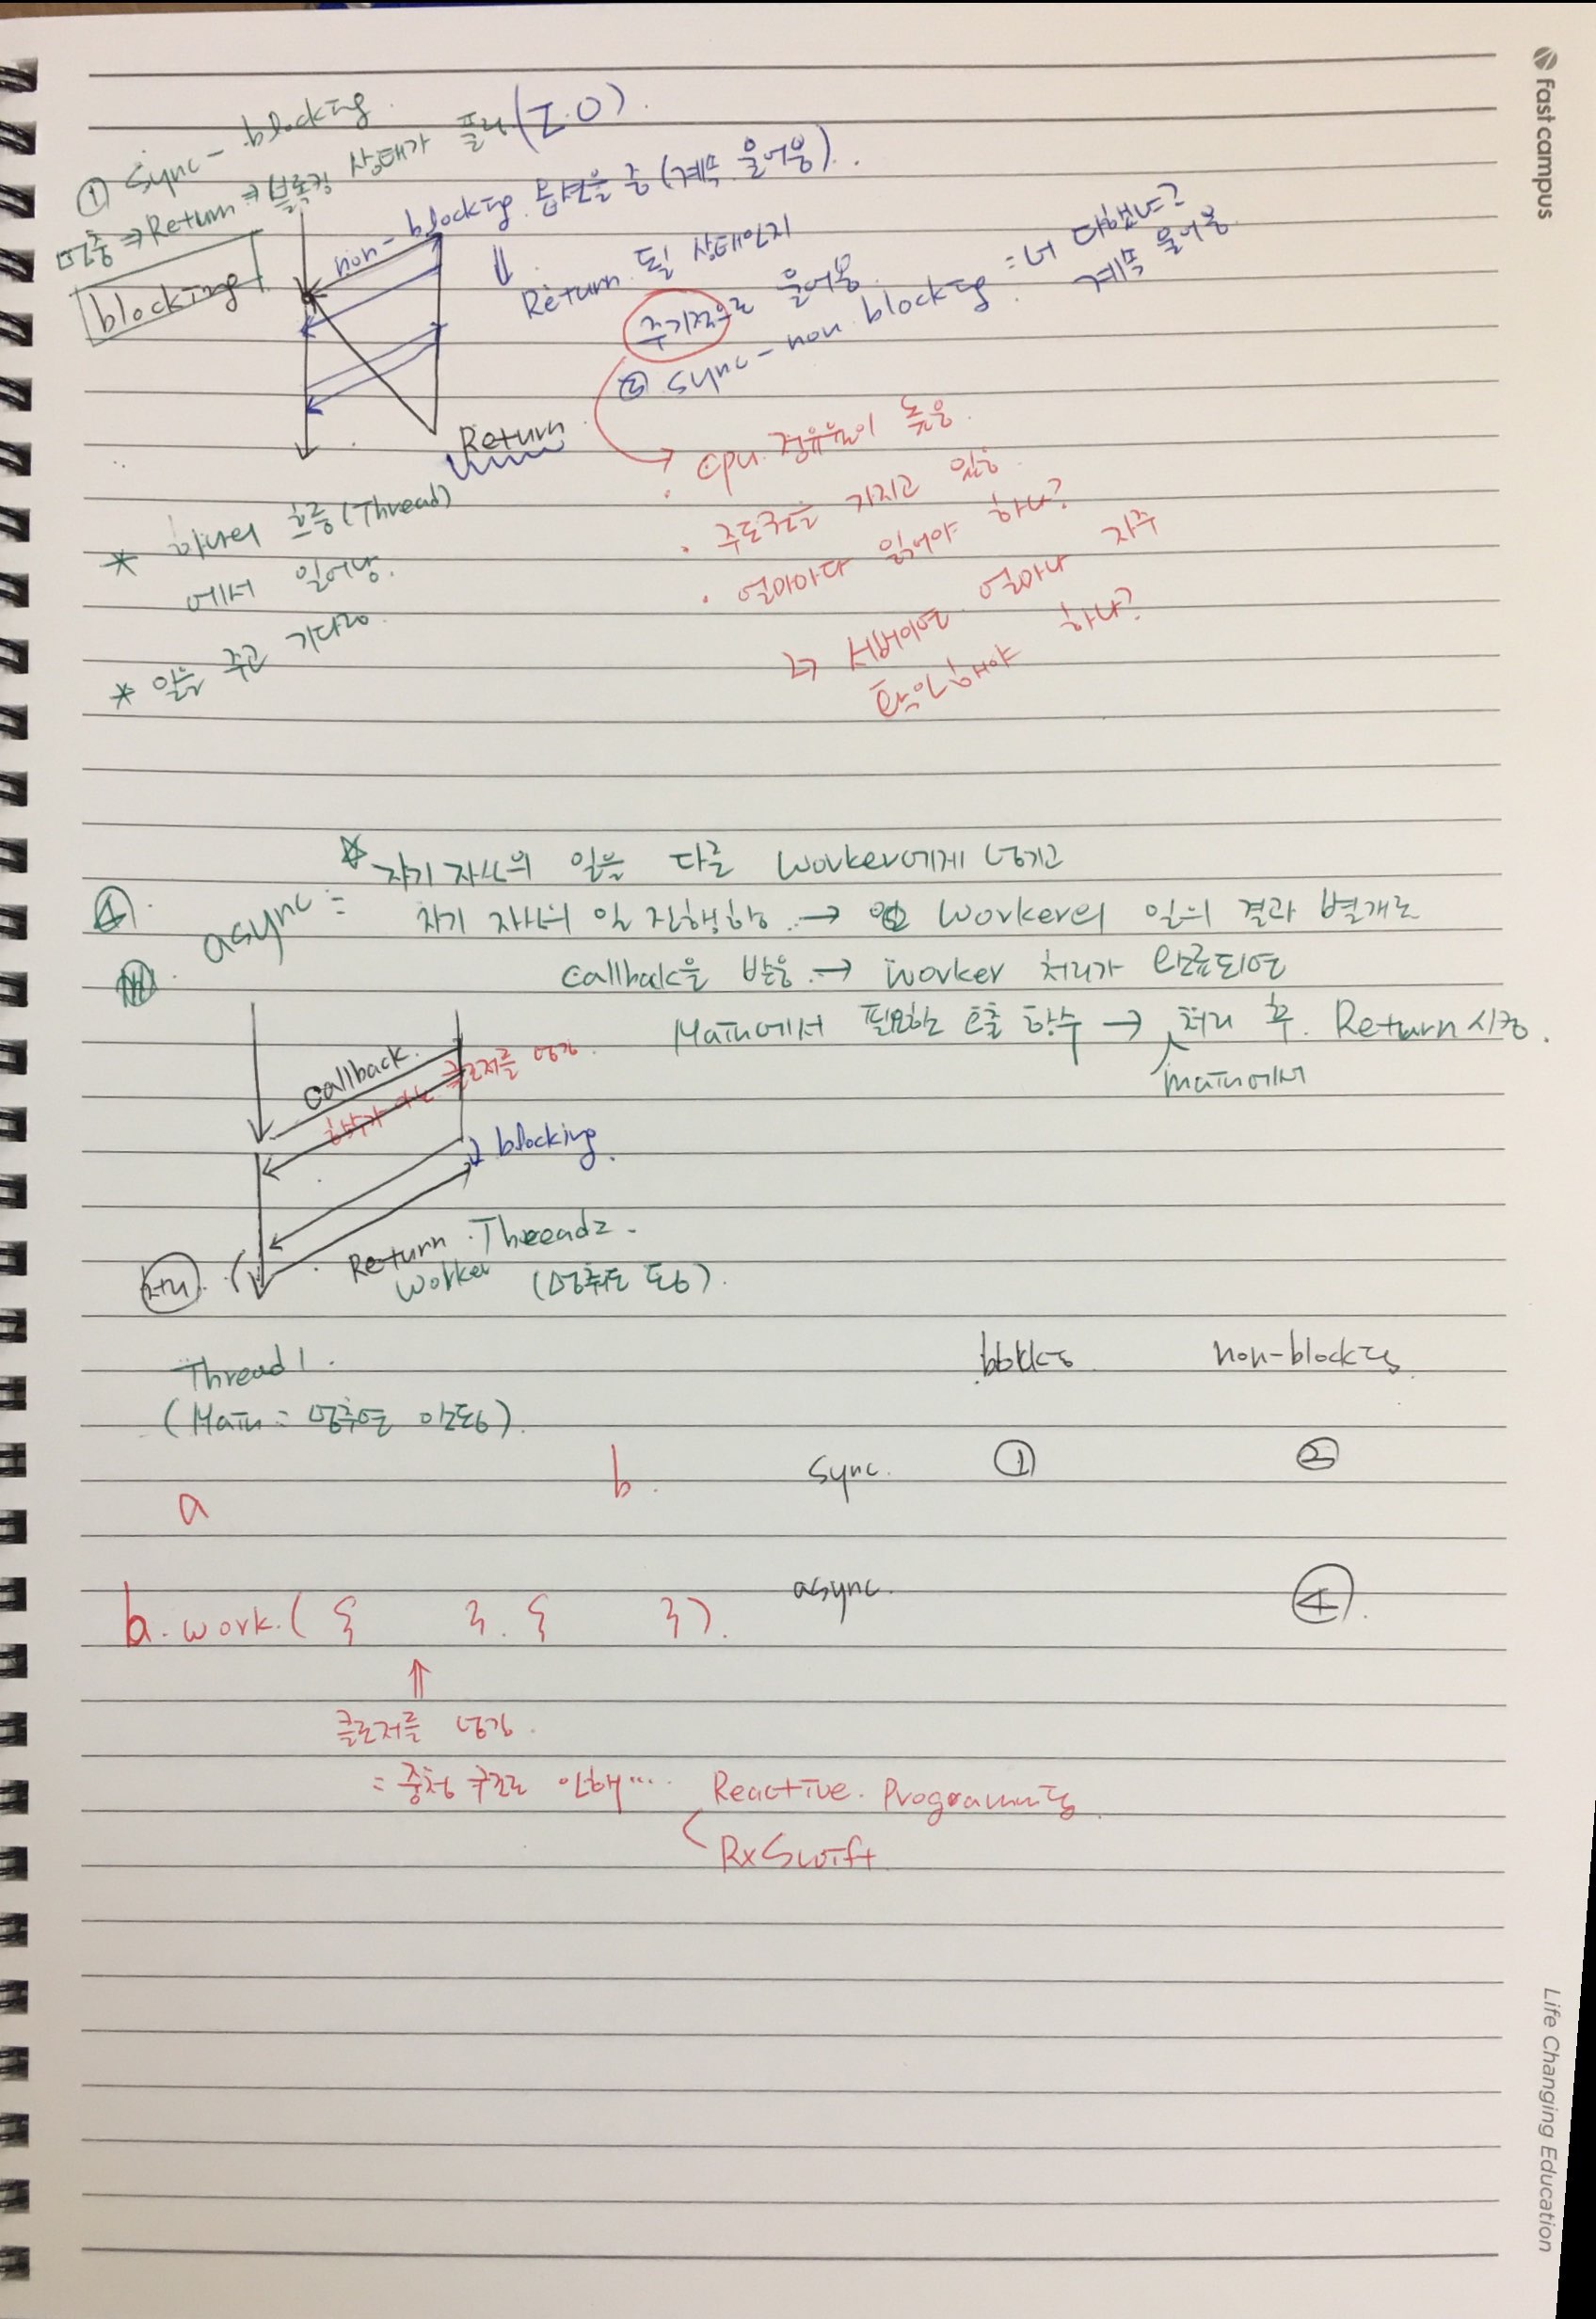 fastcampus
① Sync - blocking
멈춤 ⇒ Return ⇒ 블록킹 상태가 풀림 (I.O).
blocking
non-blocking 응답을 줌 (계속 물어봄).
⇑ Return 될 상태인지
주기적으로 물어봄
② Sync - non blocking = 너 다했니?
계속 물어봄
Return
→ CPU 점유율이 높음.
· 주도권을 가지고 있음
· 얼마마다 읽어야 하나?
↳ 서버에는 얼마나 자주
확인해야 하나?
* 하나의 흐름 (Thread)
에서 일어남.
* 일을 주고 기다림.
④ async =
☆ 자기 자신의 일을 다른 worker에게 넘기고
자기 자신의 일 진행함 → worker의 일의 결과 별개로
callback을 받음 → worker 처리가 완료되면
Main에서 필요한 호출 함수 → 처리 후 Return 시킴.
main에서
callback
클로저를 넘김.
blocking.
Return Thread2.
worker (멈춰도 됨).
Thread 1.
(Main = 멈추면 안됨).
blocking non-blocking
sync. ① ②
async. ④
a b.
b.work.( { }. { }).
⇑
클로저를 넘김.
= 중첩 구조로 인해... Reactive Programming
RxSwift
Life Changing Education